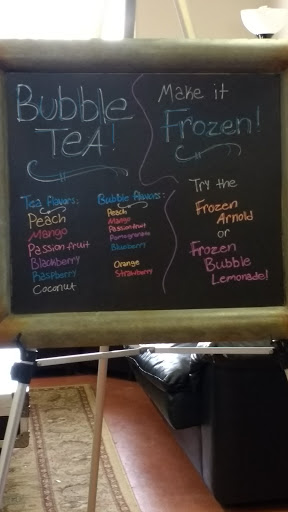 Bubble
TEA!
Tea flavors:
Peach
Mango
Passionfruit
Blackberry
Raspberry
Coconut
Bubble flavors:
Peach
Mango
Passionfruit
Pomegranate
Blueberry
Orange
Strawberry
Make it
Frozen!
Try the
Frozen
Arnold
or
Frozen
Bubble
Lemonade!